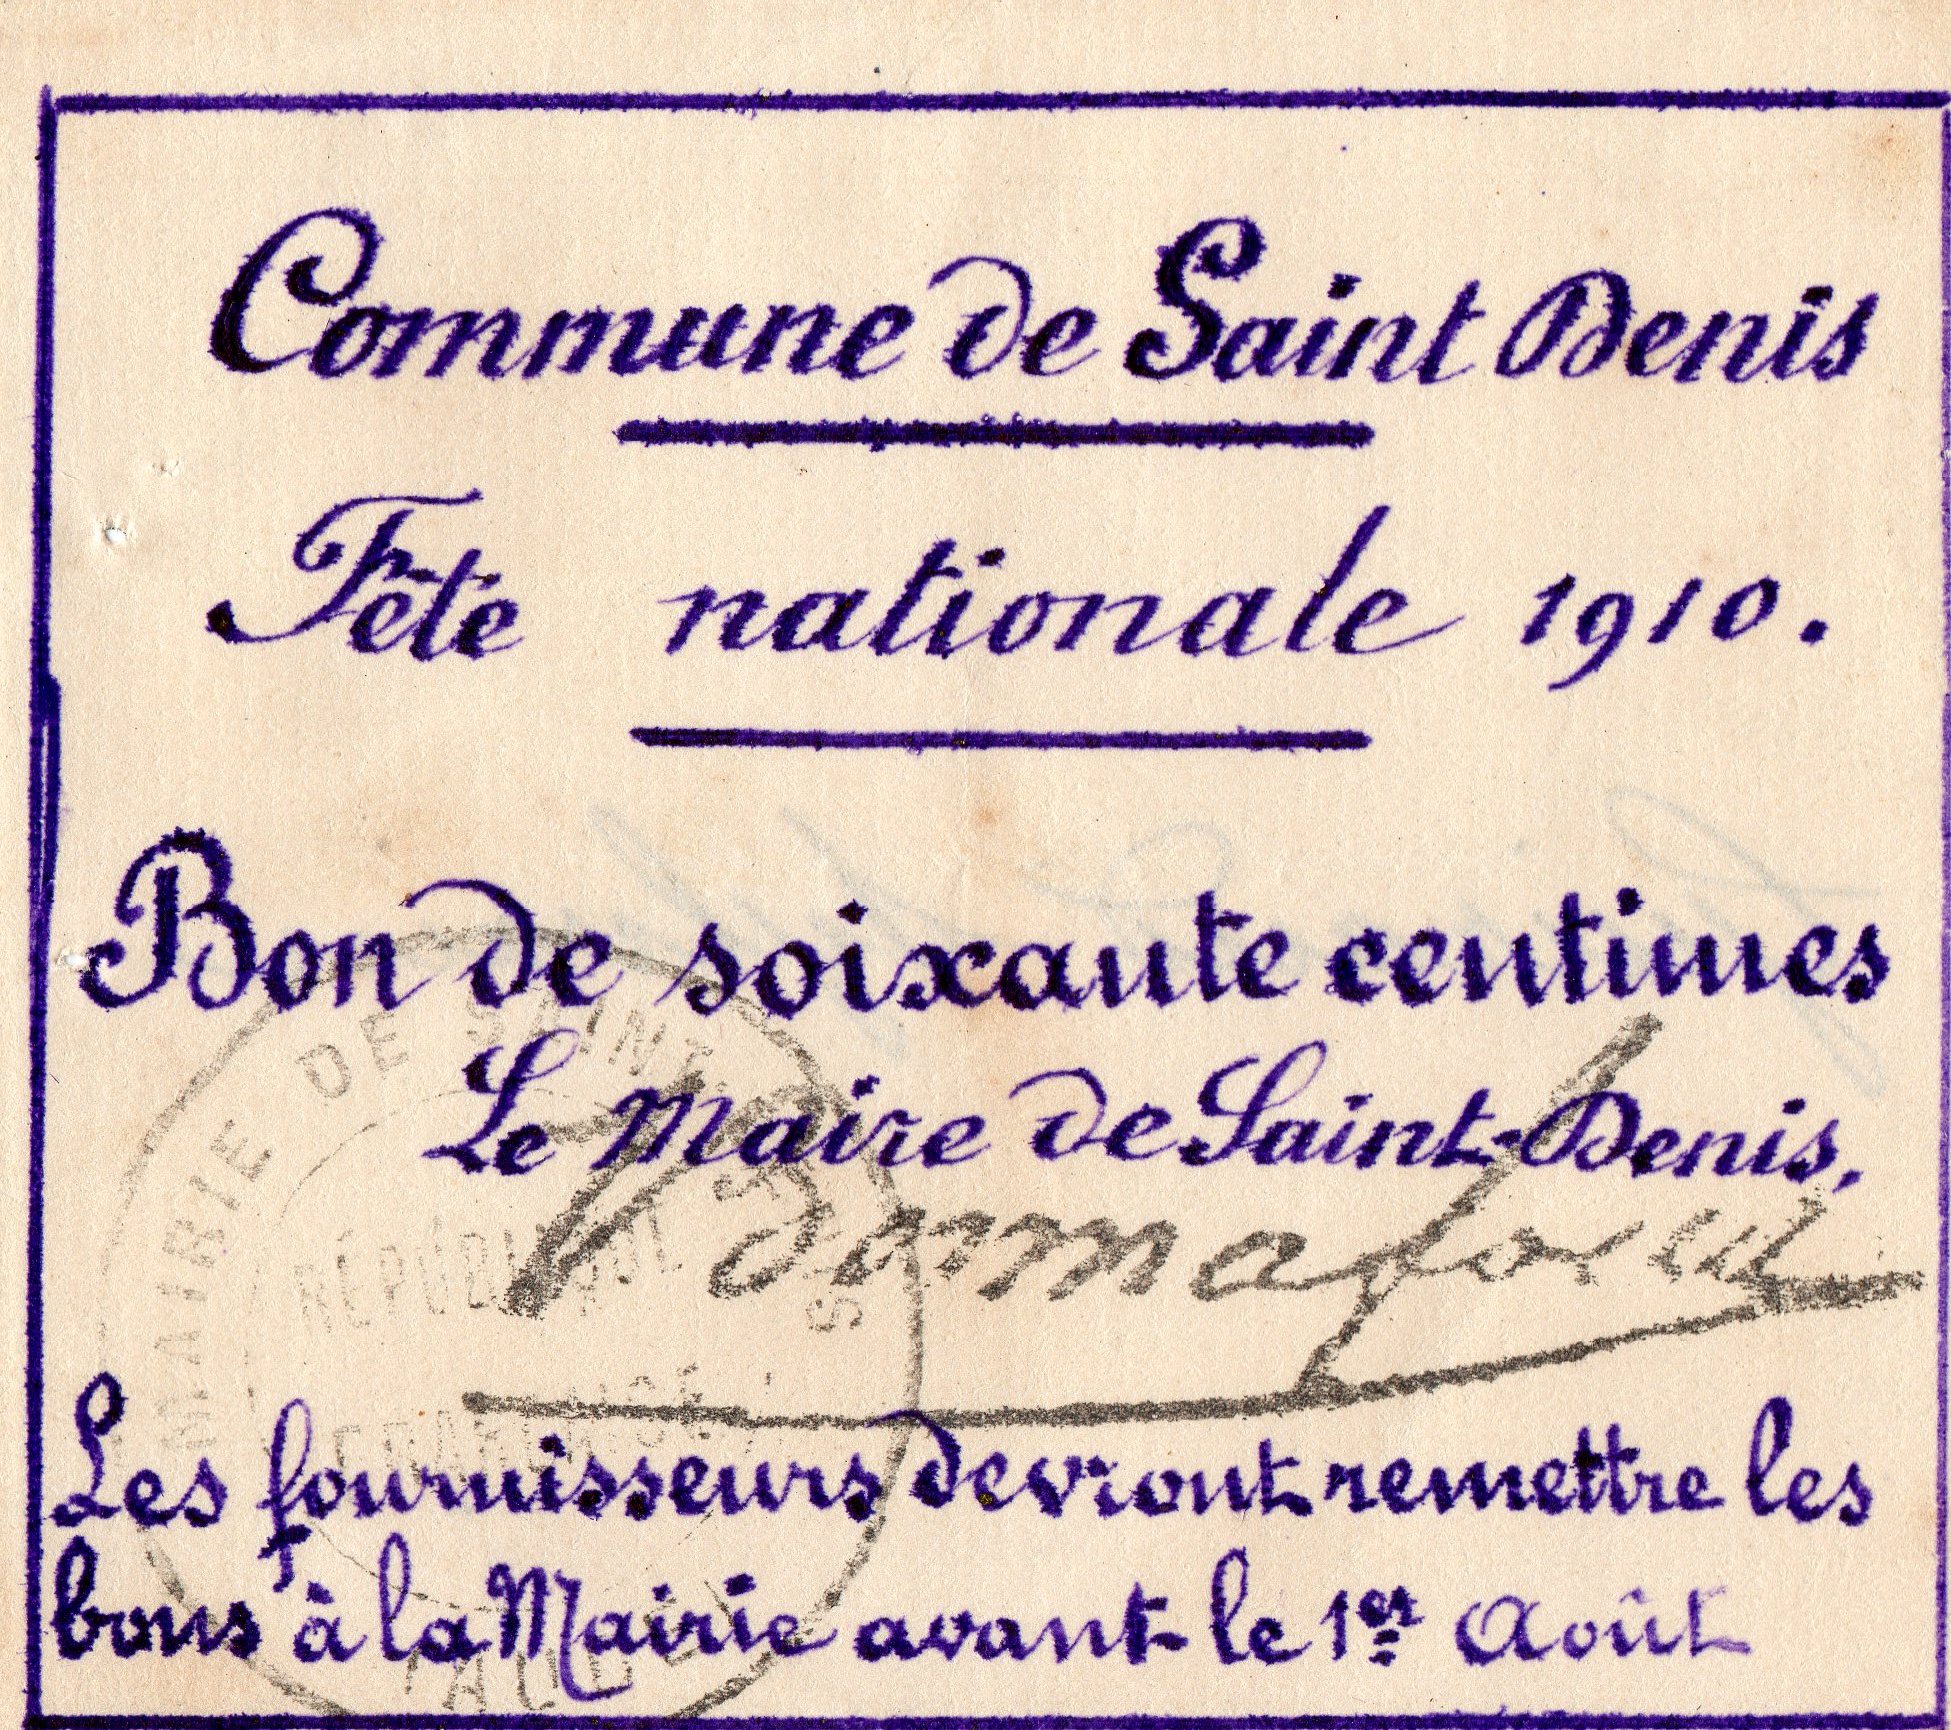 Commune de Saint Denis
Fête nationale 1910.
Bon de soixante centimes
Le Maire de Saint-Denis,
MAIRIE DE SAINT
RÉPUBLIQUE
FRANÇAISE
Les fournisseurs devront remettre les
bons à la Mairie avant le 1er Août